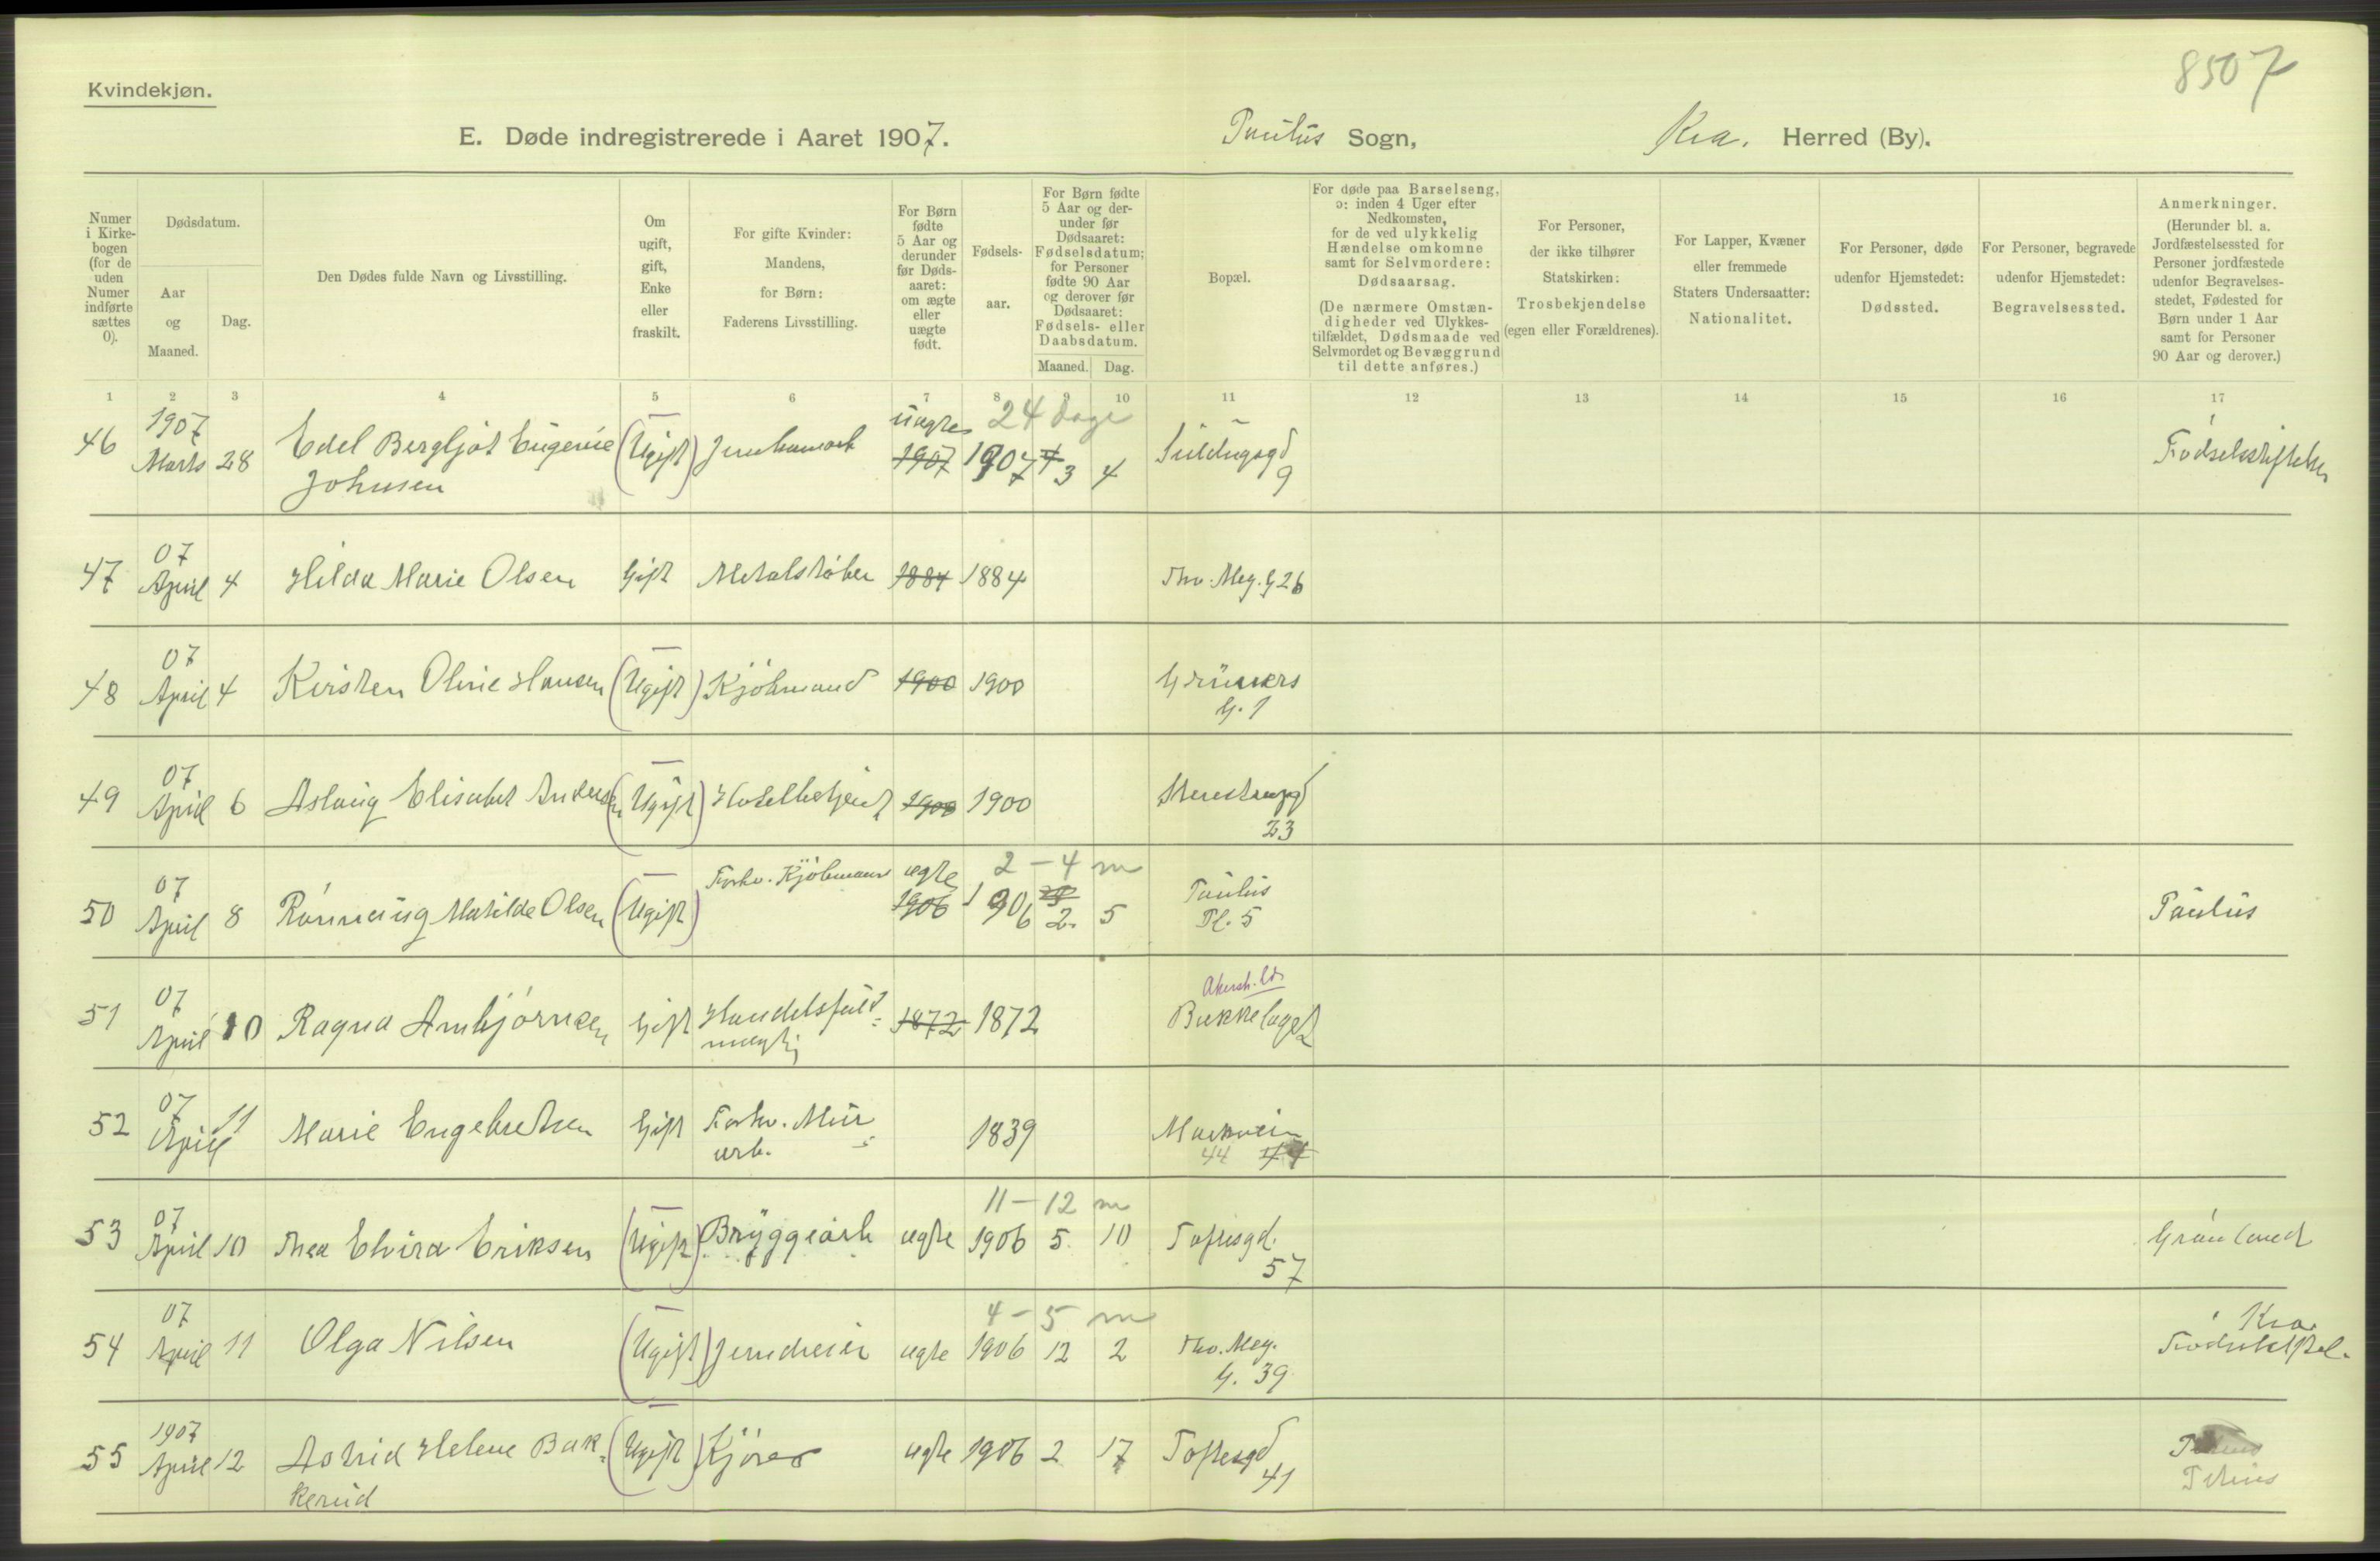 8507
Kvindekjøn.
E. Døde indregistrerede i Aaret 1907. Paulus Sogn, Kra. Herred (By).
Numer i Kirkebogen (for de uden Numer indførte sættes 0).
Dødsdatum.
Aar og Maaned.
Dag.
Den Dødes fulde Navn og Livsstilling.
Om ugift, gift, Enke eller fraskilt.
For gifte Kvinder: Mandens, for Børn: Faderens Livsstilling.
For Børn fødte 5 Aar og derunder før Dødsaaret: om ægte eller uægte født.
Fødselsaar.
For Børn fødte 5 Aar og derunder før Dødsaaret: Fødselsdatum; for Personer fødte 90 Aar og derover før Dødsaaret: Fødsels- eller Daabsdatum.
Maaned. Dag.
Bopæl.
For døde paa Barselseng, ɔ: inden 4 Uger efter Nedkomsten, for de ved ulykkelig Hændelse omkomne samt for Selvmordere: Dødsaarsag.
(De nærmere Omstændigheder ved Ulykkestilfældet, Dødsmaade ved Selvmordet og Bevæggrund til dette anføres.)
For Personer, der ikke tilhører Statskirken: Trosbekjendelse (egen eller Forældrenes).
For Lapper, Kvæner eller fremmede Staters Undersaatter: Nationalitet.
For Personer, døde udenfor Hjemstedet: Dødssted.
For Personer, begravede udenfor Hjemstedet: Begravelsessted.
Anmerkninger. (Herunder bl. a. Jordfæstelsessted for Personer jordfæstede udenfor Begravelsesstedet, Fødested for Børn under 1 Aar samt for Personer 90 Aar og derover.)
1 2 3 4 5 6 7 8 9 10 11 12 13 14 15 16 17
1907 uægte 24 dage
46 Marts 28 Edel Bergljot Eugenie (Ugift) 1907 1907 4 3 4
Johnsen 9
07
47 April 4 Hilda Marie Olsen Gift Metalstøber 1884 1884 Thv. Mey. G 26
07
48 April 4 Kirsten Oline Hansen (Ugift) Kjøbmand 1900 1900 Grüners
G. 1
07
49 April 6 Aslaug Elisabet Andersen (Ugift) Hotelbetjent 1900 1900 Steenstrupgd
23
07 Forhv. Kjøbmand ægte 2 - 4 m
50 April 8 Rønnaug Matilde Olsen (Ugift) 1906 1906 2. 5 Paulus Pl. 5 Paulus
07 Akersh.
51 April 10 Ragna Arnbjørnsen Gift Handelsfuld= 1872 1872 Bækkelaget
mægtig
07
52 April 11 Marie Engebretsen Gift Forhv. Mur= 1839 Markvein
arb. 44 44
07 11 - 12 m
53 April 10 Thea Elvira Eriksen (Ugift) Bryggearb ægte 1906 5. 10 Toftesgd. Grønland
57
07 4 - 5 m Kra.
54 April 11 Olga Nilsen (Ugift) Jerndreier ægte 1906 12 2 Thv. Mey. Fødselsstel.
G. 39
1907
55 April 12 Astrid Helene Bak= (Ugift) Kjører ægte 1906 2 17 Toftesgd
kerud 41 Petrus